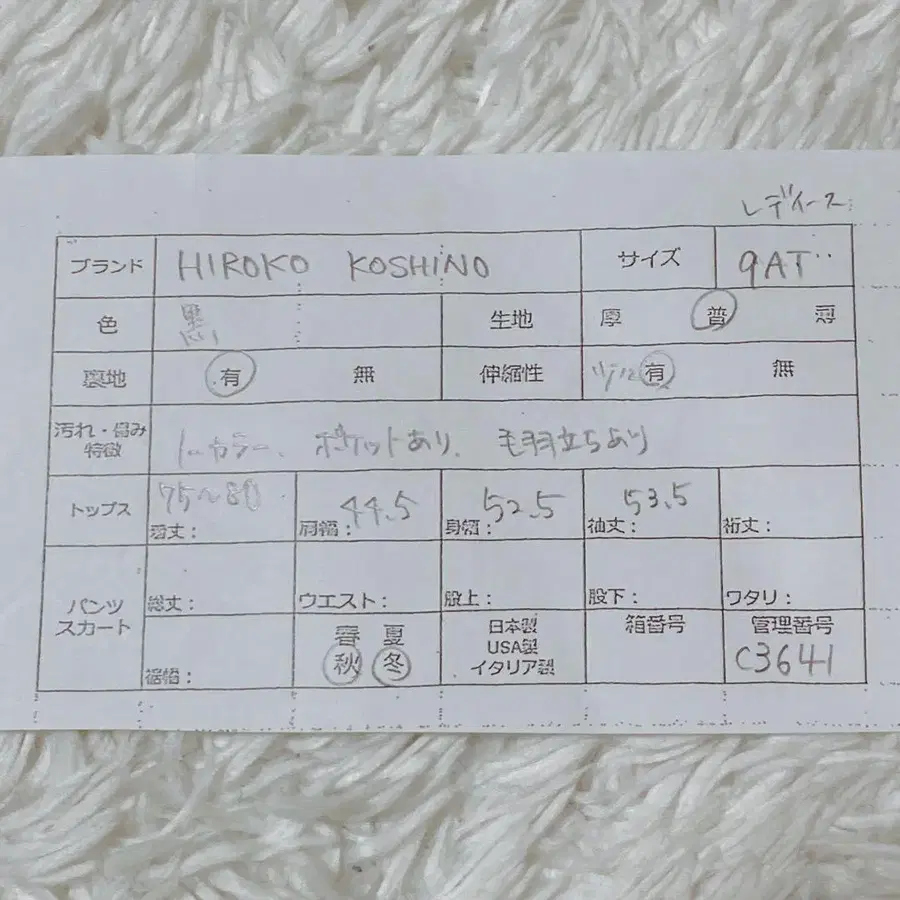 レディース
ブランド HIROKO KOSHINO サイズ 9AT
色 黒 生地 厚 普 薄
裏地 有 無 伸縮性 有 無
汚れ・傷み 特徴 カラー、ポケットあり、毛羽立ちあり
トップス 着丈: 75〜80 肩幅: 44.5 身幅: 52.5 袖丈: 53.5 裄丈:
パンツ スカート 総丈: ウエスト: 股上: 股下: ワタリ:
裾幅: 春 夏 秋 冬 日本製 USA製 イタリア製 箱番号 管理番号 C3641